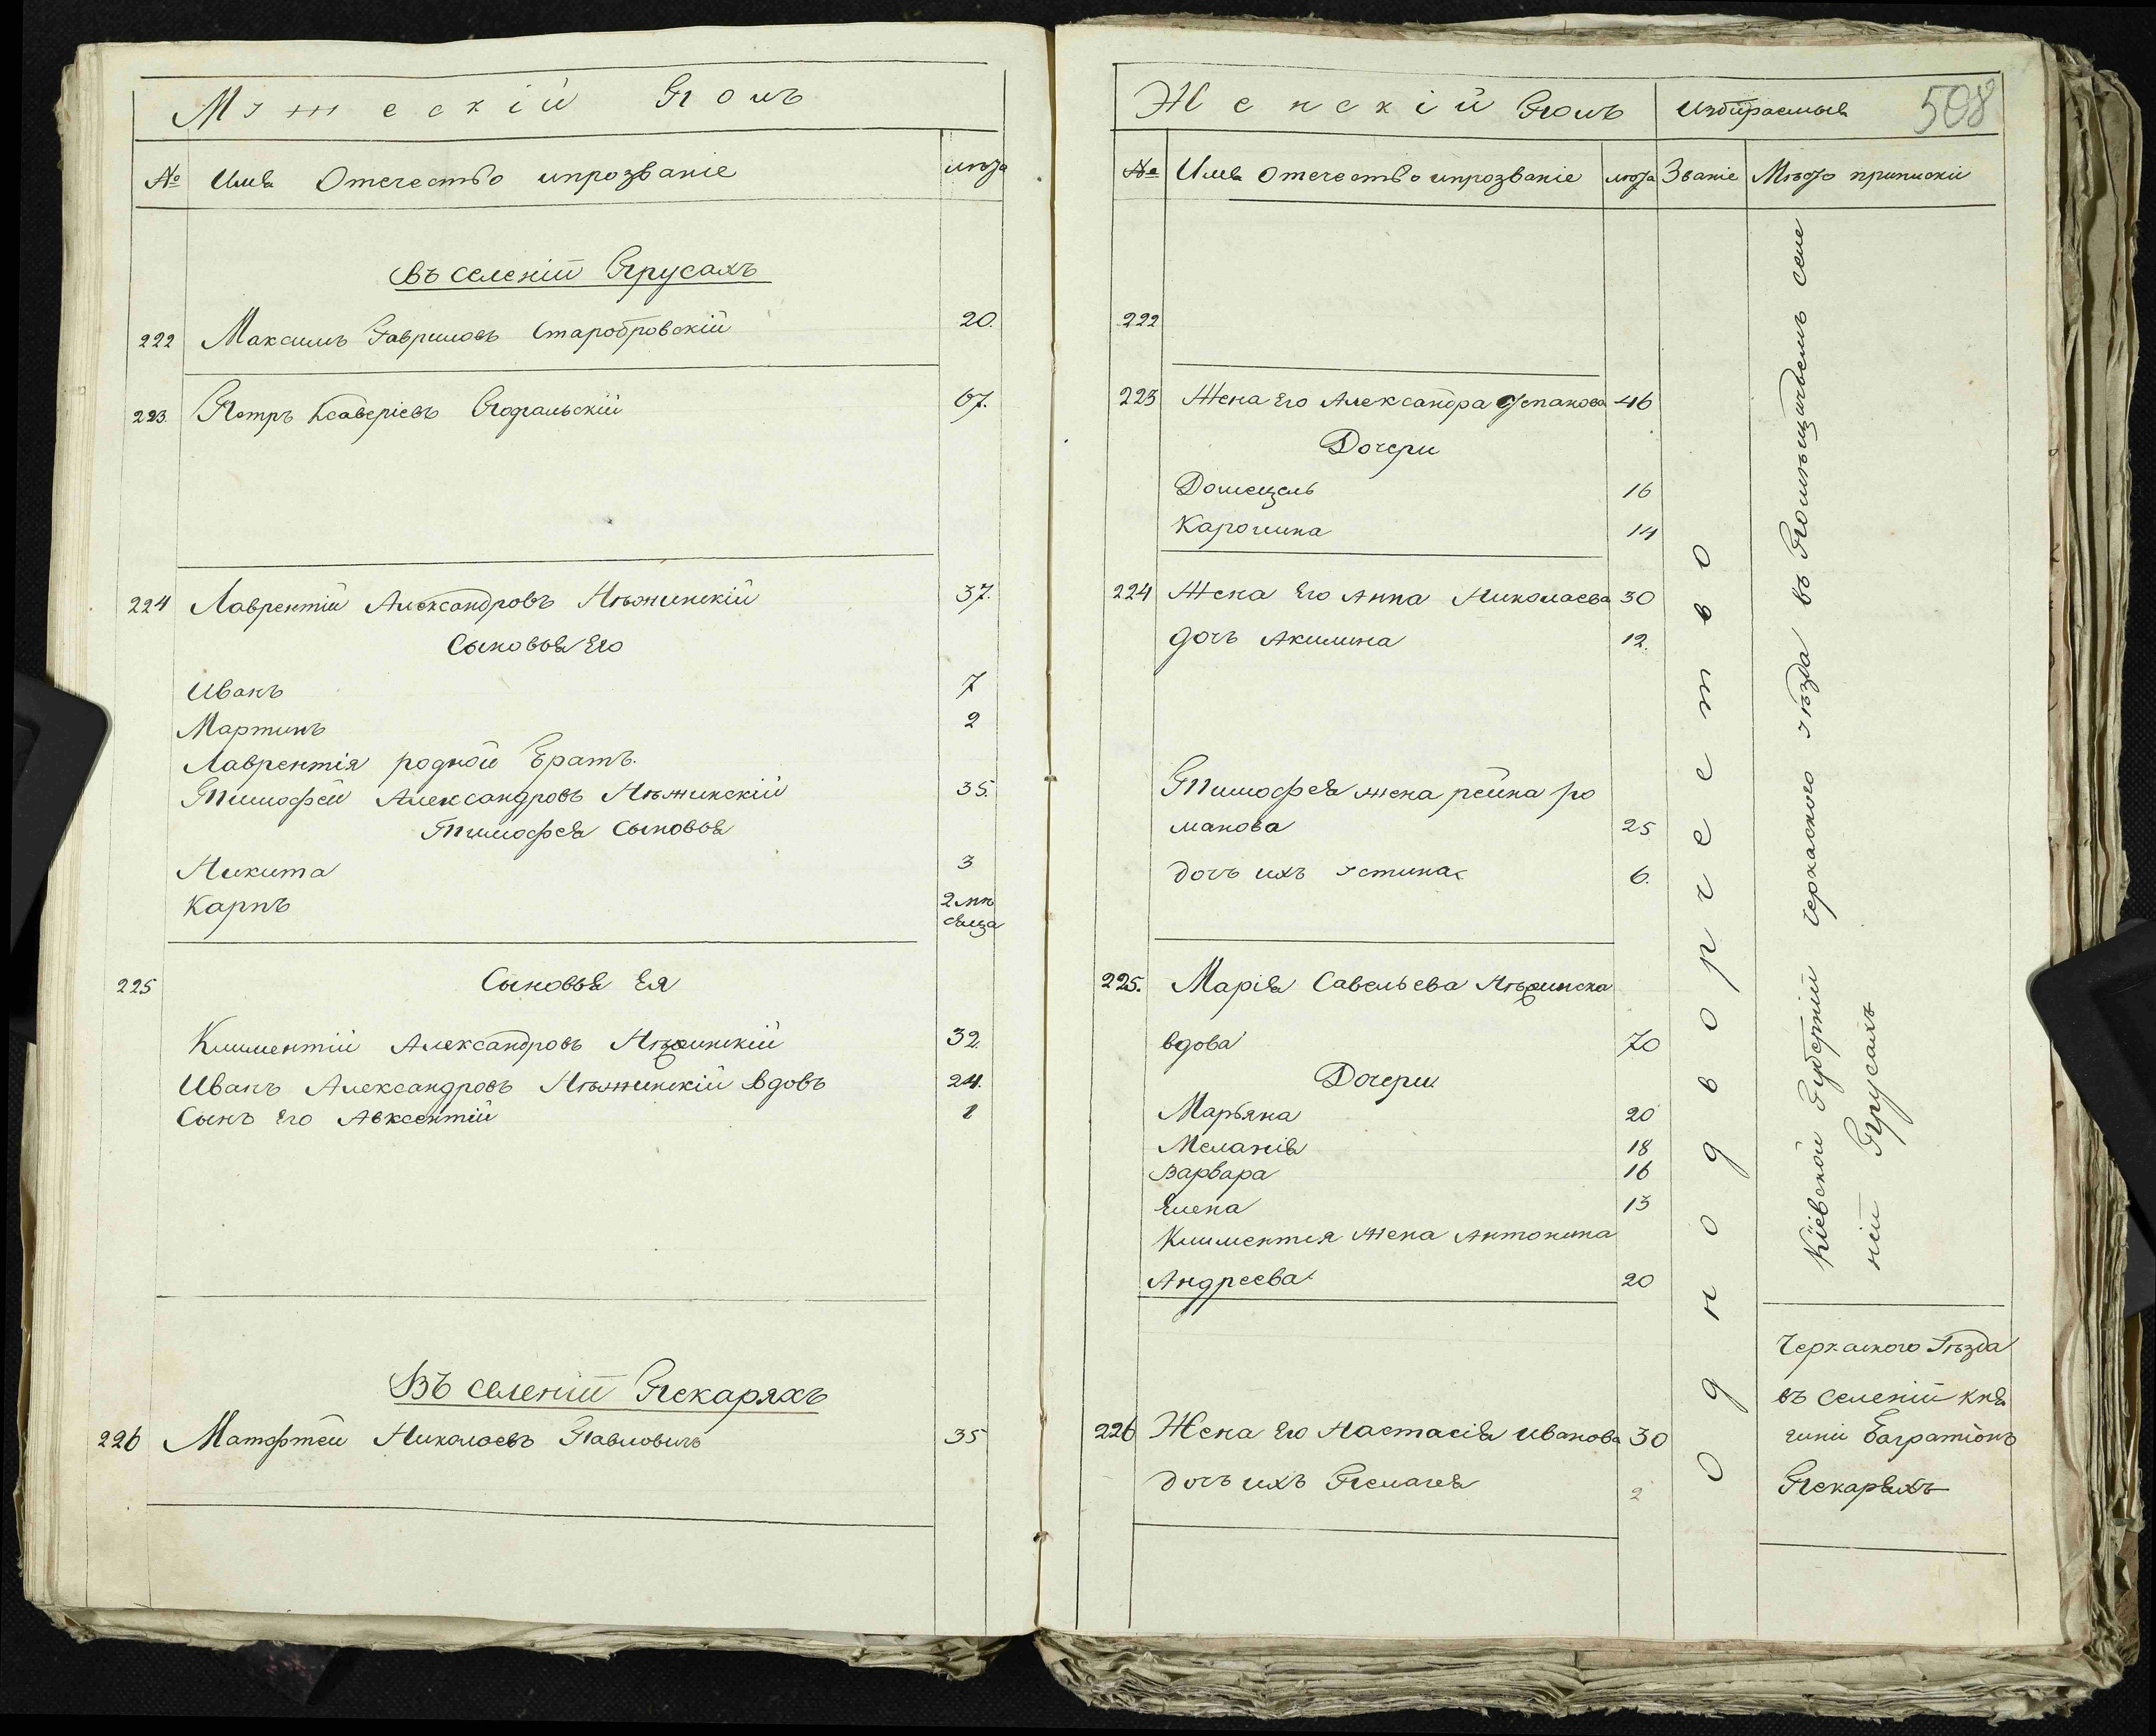 Мужескій Полъ
№ Имя Отечество ипрозваніе лѣта
въ селеніи Прусахъ
222 Максимъ Гавриловъ Старобровскій 20.
223. Петръ Ксаверіевъ Подгальскій 67.
224 Лаврентій Александровъ Нѣжинскій 37.
Сыновья Его
Иванъ 7
Мартинъ 2
Лаврентія родной Братъ.
Тимофей Александровъ Нѣжинскій 35.
Тимофея Сыновья
Никита 3
Карпъ 2 мѣ
сяца
225 Сыновья Ея
Климентій Александровъ Нѣжинскій 32.
Иванъ Александровъ Нѣжинскій вдовъ 24.
Сынъ Его Авксентій 1
Въ селеніи Пекаряхъ
226 Матфтей Николаевъ Павловичъ 35
Женскій Полъ Избираемыя 508
№ Имя Отечество ипрозваніе лѣта Званіе Мѣсто приписки
222
223 Жена Его Александра Степанова 46
Дочери
Домецель 16
Каролина 14
224 Жена Его Анна Николаева 30
дочь Акилина 12.
Тимофея жена реина ро
манова 25
дочь ихъ устина 6.
225. Марія Савельева Нѣжинска
вдова 70
Дочери
Марьяна 20
Меланія 18
Варвара 16
Елена 13
Климентия Жена Антонина
Андреева 20
226 Жена Его Настасія Иванова 30
дочь ихъ Пелагея 2
однодворчество
Кіевской Губерніи черкаского уѣзда въ Помѣщичьемъ селе
ніи Прусахъ
Черкаского Уѣзда
въ селеніи Кня
гини Багратіонъ
Пекаряхъ